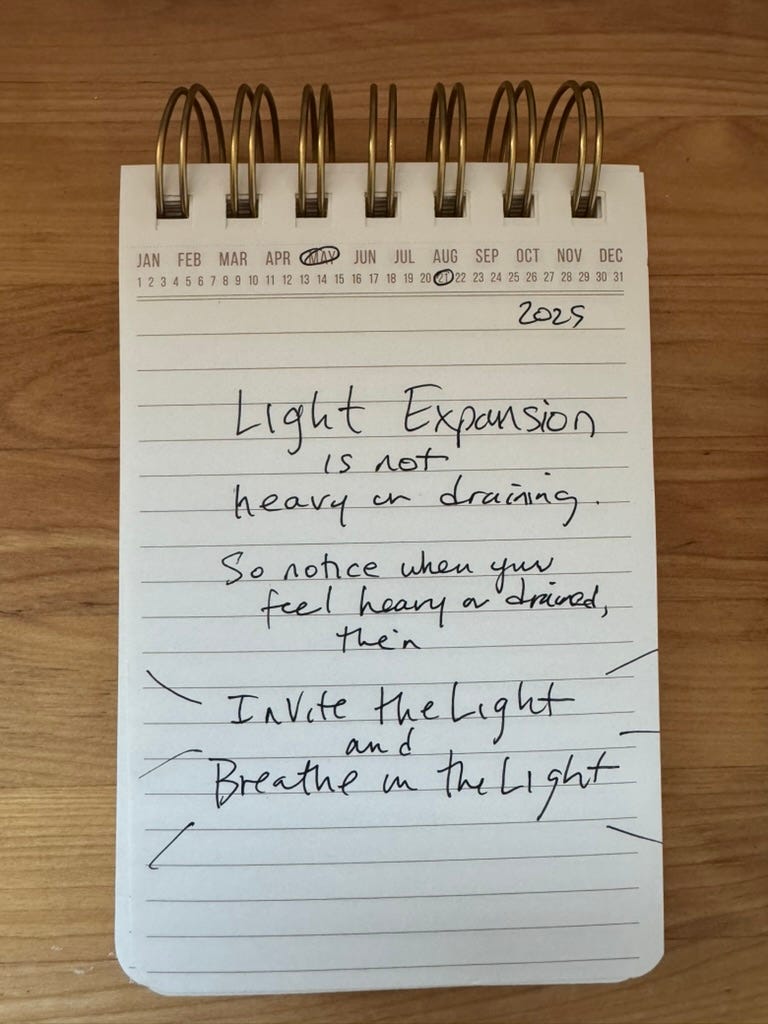 JAN FEB MAR APR MAY JUN JUL AUG SEP OCT NOV DEC
1 2 3 4 5 6 7 8 9 10 11 12 13 14 15 16 17 18 19 20 21 22 23 24 25 26 27 28 29 30 31
2025
Light Expansion
is not
heavy or draining.
So notice when you
feel heavy or drained,
then
Invite the Light
and
Breathe in the Light